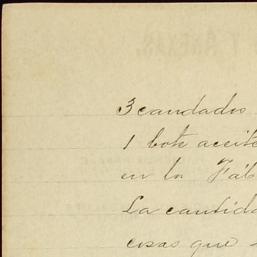 3 candados
1 bote aceite
en la Fáb
La cantida
cosas que